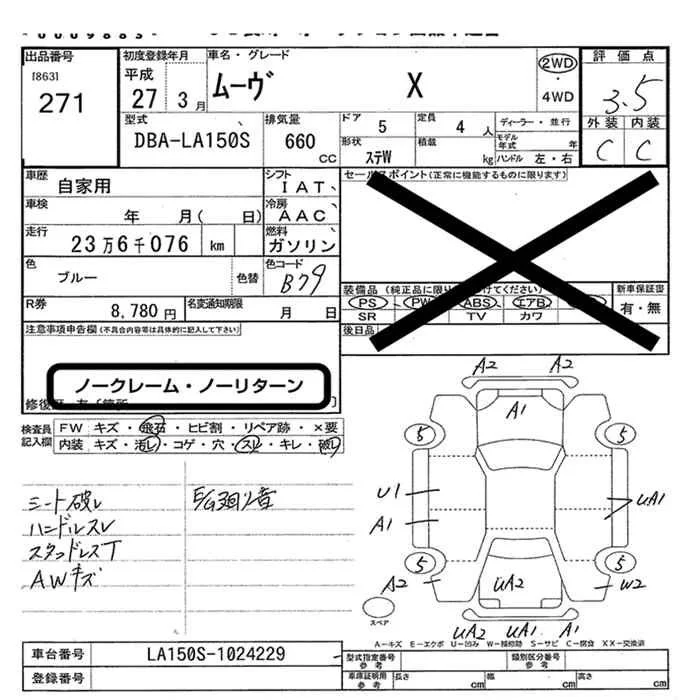 出品番号 初度登録年月 車名・グレード 評価点
[863] 平成 ムーヴ X 2WD 3.5
271 27 3月 ・4WD 外装 内装
型式 排気量 ドア 定員 ディーラー・並行 C C
DBA-LA150S 660 CC 5 4人 モデル年式 年
形状 ステW 積載 kg ハンドル 左・右
車歴 自家用 シフト IAT セールスポイント(正常に機能するものに限ります)
車検 年 月( 日) 冷房 AAC
走行 23万6千076 km 燃料 ガソリン
色 ブルー 色替 色コード B79 装備品(純正品に限り
けてください) 新車保証書
R券 8,780円 名変通知期限 月 日 PS・PW・ABS・エアB・ 有・無
SR TV カワ
注意事項申告欄(不具合内容等は具体的に記入して下さい) 後日品
ノークレーム・ノーリターン
検査員記入欄 FW キズ・飛石・ヒビ割・リペア跡・×要
内装 キズ・汚レ・コゲ・穴・スレ・キレ・破レ
シート破レ E/G廻り音
ハンドルスレ
スタッドレスT
AWキズ
A2 A2
A1
5 5
U1 UA1
A1
5 5
A2 UA2 W2
スペア
UA2 UA1 A1
A−キズ E−エクボ U−凹み W−補修跡 S−サビ C−腐食 XX−交換済
車台番号 LA150S-1024229 型式指定番号 参考 類別区分番号 参考
登録番号 車庫証明用 参考 長さ cm 幅 cm 高さ cm